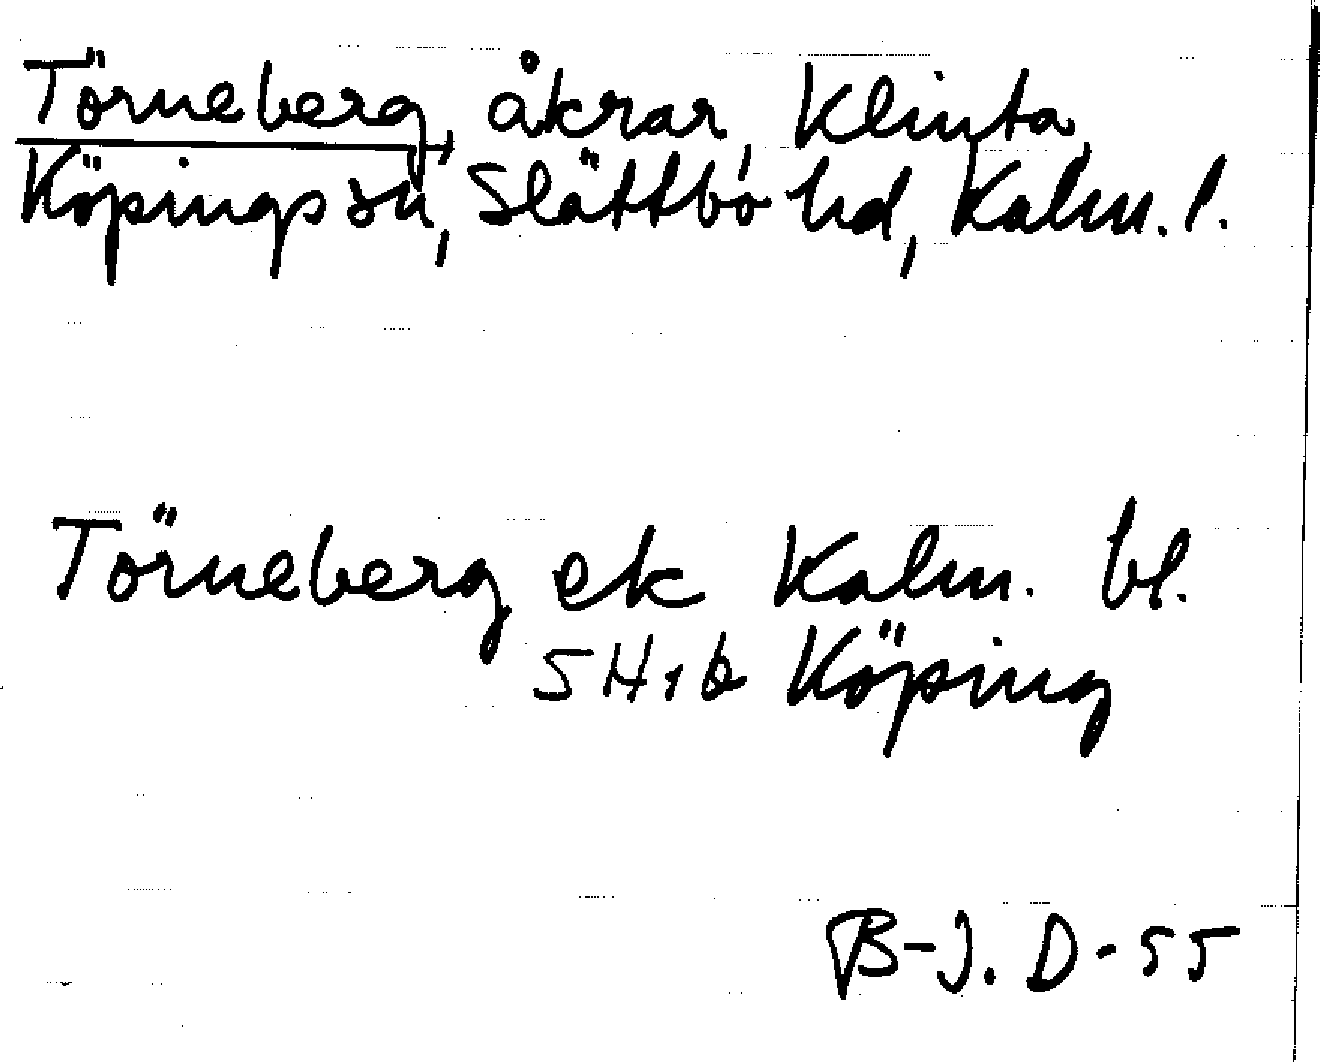 Törneberg, åkrar, Klinta,
Köpings sn, Slättbo hd, Kalm. l.
Törneberg ek Kalm. bl.
5 H 1 b Köping
B-J. D-55